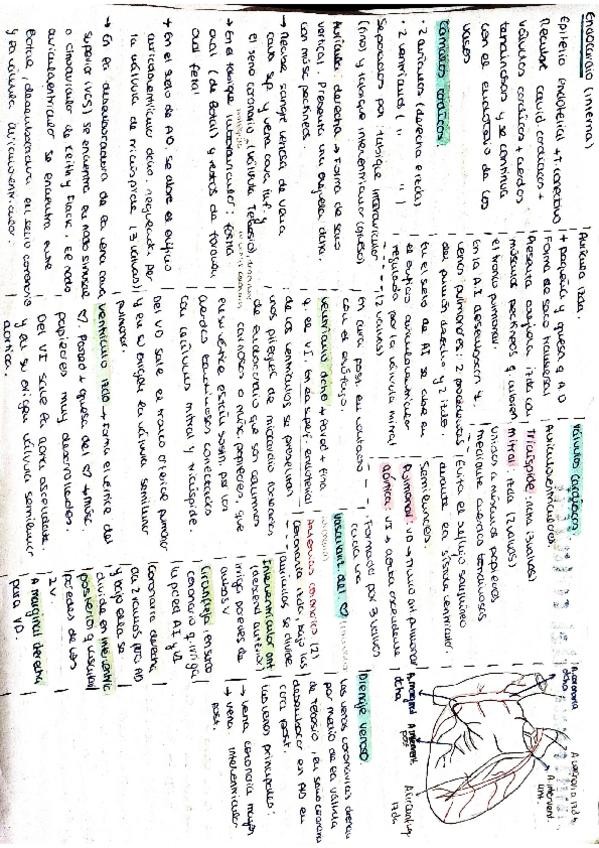 Endocardio (interno)
Epitelio endotelial + T. conectivo
Recubre cavid cardiacas +
válvulas cardiacas + cuerdas
tendinosas y se continúa
con el endotelio de los
vasos
Cámaras cardiacas
· 2 aurículas (derecha e izda
· 2 ventrículos ( " " )
Separados por tabique interauricular
(fino) y tabique interventricular (grueso)
Aurícula derecha → Forma de saco
vertical. Presenta una orejuela dcha.
con músc pectíneos.
→ Recibe sangre venosa de vena
cava sup y vena cava inf y
el seno coronario (válvula Tebesio).
→ En el tabique interauricular: fosa
oval (de Botal) y restos de foramen
oval fetal
→ En el suelo de AD, se abre el orificio
auriculoventricular dcho, regulado por
la válvula de tricúspide (3 valvas)
→ En la desembocadura de la vena cava
superior (VCS) se encuentra en nodo sinusal
o sinoauricular de Keith y Flack. El nodo
auriculoventricular se encuentra entre
Botal, desembocadura en seno coronario
y la válvula aurículo-ventricular.
Aurícula izda.
+ pequeña y gruesa q AD
Forma de saco transversal
Presenta orejuela izda con
músculos pectíneos q rodean
el tronco pulmonar.
En la AI desembocan 4
venas pulmonares: 2 procedentes
del pulmón derecho y 2 izdo.
En el suelo de AI se abre en
el orificio auriculoventricular
regulado por la válvula mitral
(2 valvas)
En cara post. en contacto
con el esófago.
Ventrículo dcho → Pared + fina
q de VI. En la superf. endotelial
de los ventrículos se presentan
unos pliegues de miocardio forrados
de endocardio que son columnas
carnosas o músc papilares, que
en su vértice están sosten. por las
cuerdas tendinosas conectadas
con válvulas mitral y tricúspide.
Del VD sale el tronco arteria pulmonar
y en su origen la válvula semilunar
pulmonar.
Ventrículo izdo → Forma el vértice del
♡. Pared + gruesa del ♡ → músc.
papilares muy desarrollados.
Del VI sale la aorta ascendente
y en su origen válvula semilunar
aórtica.
Válvulas cardiacas
Auriculoventriculares
Tricúspide: dcha (3 valvas)
mitral: izda (2 valvas)
unidas a músculos papilares
mediante cuerdas tendinosas
Evita el reflujo sanguíneo
durante la sístole ventricular
Semilunares
Pulmonar: VD → tronco art pulmonar
Aórtica: VI → aorta ascendente
Formadas por 3 valvas
cada una
Vasculariz. del ♡
Arterias coronarias (2)
Coronaria izda, bajo las
aurículas se divide
Interventricular ant
(descend anterior)
irriga paredes de
ambos V
Circunfleja, en surco
coronario q irriga
la pared AI y VI
Coronaria derecha
da 2 ramas para AD
y bajo esta se
divide en interventric
posterior q vasculariz
paredes de los
2 V.
A marginal derecha
para VD.
A. coronaria
dcha
A. coronaria izda
A. intervent.
ant.
A. circunfleja
izda
A. intervent
post
A. marginal
dcha
Drenaje venoso
Las venas coronarias drenan
por medio de la válvula
de Tebesio, en seno coronario
desembocan en AD en
cara post.
Las venas principales:
→ vena coronaria mayor
→ vena interventricular
post.